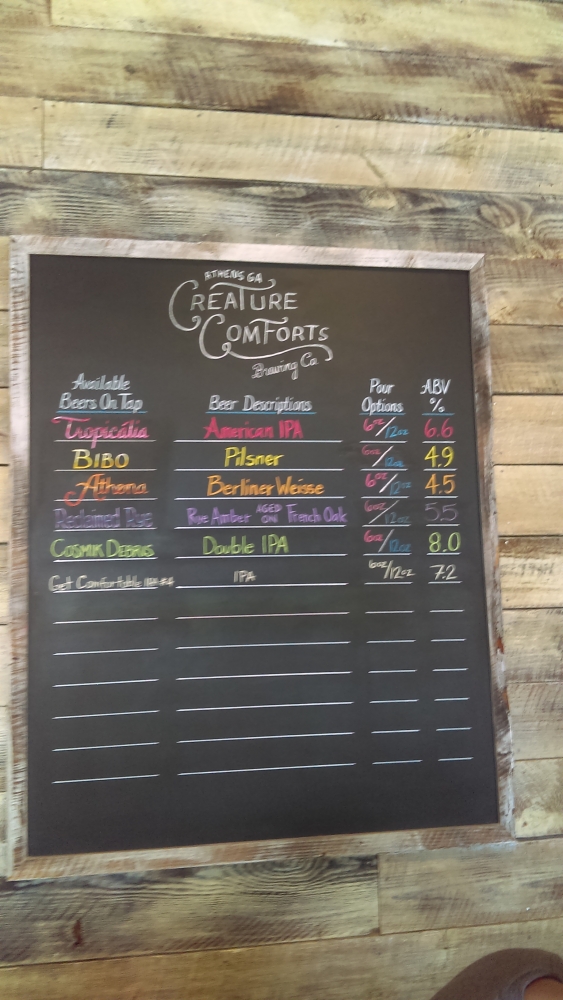 ATHENS GA
CREATURE
COMFORTS
Brewing Co
Available Beers On Tap Beer Descriptions Pour Options ABV %
Tropicália American IPA 6oz/12oz 6.6
BIBO Pilsner 6oz/12oz 4.9
Athena Berliner Weisse 6oz/12oz 4.5
Reclaimed Rye Rye Amber AGED ON French Oak 6oz/12oz 5.5
COSMIK DEBRIS Double IPA 6oz/12oz 8.0
Get Comfortable IPA 6oz/12oz 7.2